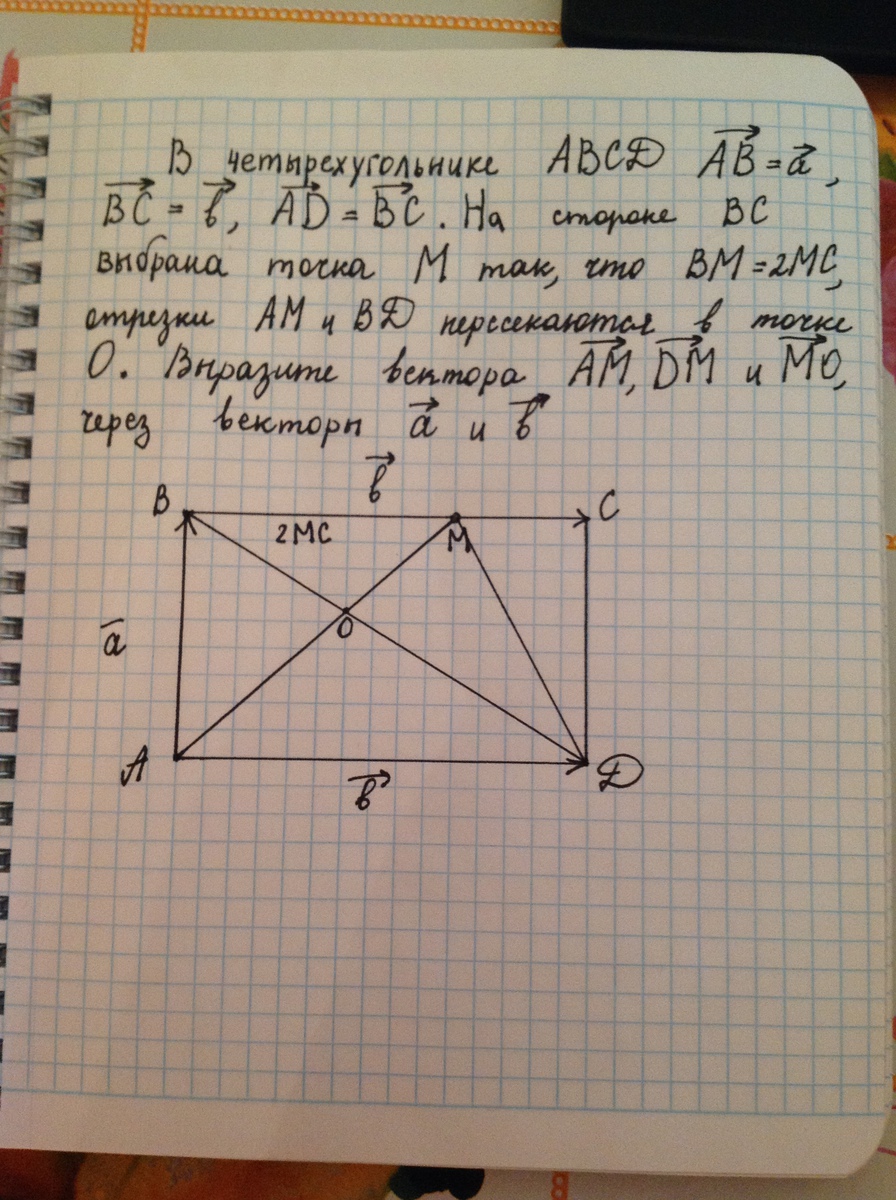 В четырехугольнике ABCD AB⃗ = a⃗,
BC⃗ = b⃗, AD⃗ = BC⃗. На стороне BC
выбрана точка M так, что BM = 2MC,
отрезки AM и BD пересекаются в точке
O. Выразите вектора AM⃗, DM⃗ и MO⃗,
через векторы a⃗ и b⃗
b⃗
B
C
2MC
M
O
a̅
A
D
b⃗